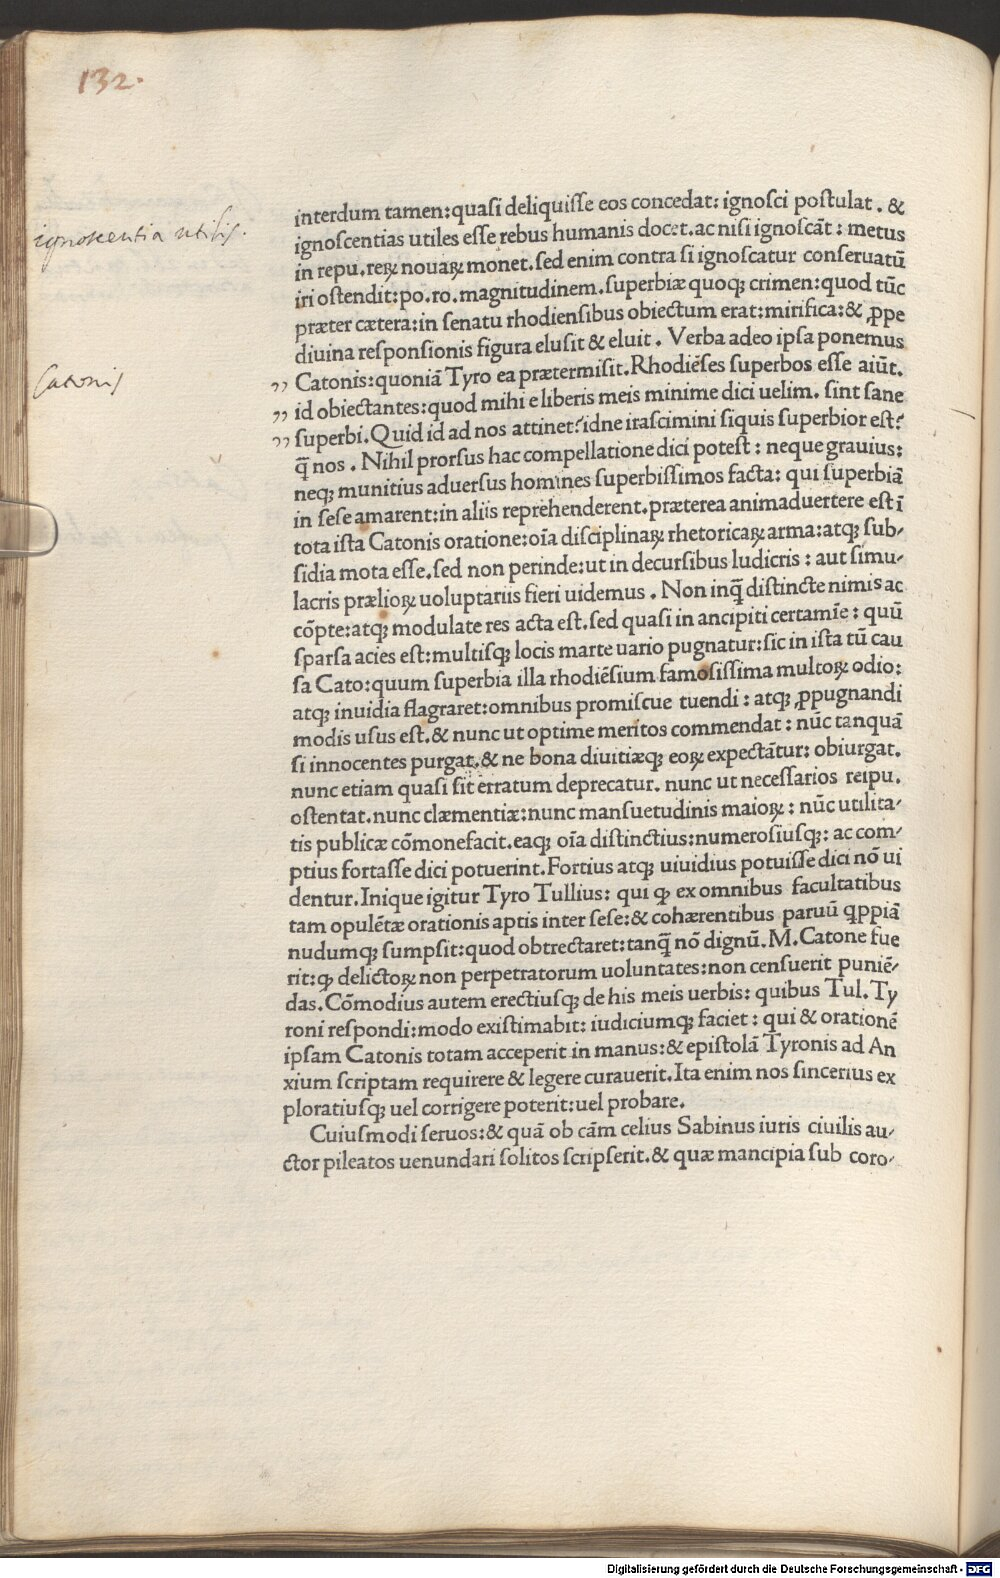 132.
interdum tamen:quasi deliquisse eos concedat: ignosci postulat. &
ignoscentia utilis.
ignoscentias utiles esse rebus humanis docet.ac nisi ignoscāt: metus
in repu.reꝝ nouaꝝ monet.sed enim contra si ignoscatur conseruatū
iri ostendit:po.ro.magnitudinem.superbiæ quoqꝫ crimen:quod tūc
præter cætera:in senatu rhodiensibus obiectum erat:mirifica:& ꝓpe
diuina responsionis figura elusit & eluit. Verba adeo ipsa ponemus
Catonis
,, Catonis:quoniā Tyro ea prætermisit.Rhodiēses superbos esse aiūt.
,, id obiectantes:quod mihi e liberis meis minime dici uelim. sint sane
,, superbi.Quid id ad nos attinet?idne irascimini siquis superbior est?
q̄ nos. Nihil prorsus hac compellatione dici potest: neque grauius:
neqꝫ munitius aduersus homines superbissimos facta: qui superbiā
in sese amarent:in aliis reprehenderent.præterea animaduertere est ī
tota ista Catonis oratione:oīa disciplinaꝝ rhetoricaꝝ arma:atqꝫ sub-
sidia mota esse.sed non perinde:ut in decursibus ludicris: aut simu-
lacris prælioꝝ uoluptariis fieri uidemus. Non inq̄ distincte nimis ac
cōpte:atqꝫ modulate res acta est.sed quasi in ancipiti certamīe: quū
sparsa acies est:multisqꝫ locis marte uario pugnatur:sic in ista tū cau
sa Cato:quum superbia illa rhodiēsium famosissima multoꝝ odio:
atqꝫ inuidia flagraret:omnibus promiscue tuendi: atqꝫ ꝓpugnandi
modis usus est.& nunc ut optime meritos commendat: nūc tanquā
si innocentes purgat.& ne bona diuitiæqꝫ eoꝝ expectātur: obiurgat.
nunc etiam quasi sit erratum deprecatur. nunc ut necessarios reipu.
ostentat.nunc clæmentiæ:nunc mansuetudinis maioꝝ: nūc utilita-
tis publicæ cōmonefacit.eaqꝫ oīa distinctius:numerosiusqꝫ: ac com-
ptius fortasse dici potuerint.Fortius atqꝫ uiuidius potuisse dici nō ui
dentur.Inique igitur Tyro Tullius: qui ꝙ ex omnibus facultatibus
tam opulētæ orationis aptis inter sese:& cohærentibus paruū qppiā
nudumqꝫ sumpsit:quod obtrectaret:tanq̄ nō dignū.M.Catone fue
rit:ꝙ delictoꝝ non perpetratorum uoluntates:non censuerit puniē-
das.Cōmodius autem erectiusqꝫ de his meis uerbis: quibus Tul.Ty
roni respondi:modo existimabit: iudiciumqꝫ faciet: qui & orationē
ipsam Catonis totam acceperit in manus:& epistolā Tyronis ad An
xium scriptam requirere & legere curauerit.Ita enim nos sincerius ex
ploratiusqꝫ uel corrigere poterit:uel probare.
Cuiusmodi seruos:& quā ob cām celius Sabinus iuris ciuilis au-
ctor pileatos uenundari solitos scripserit.& quæ mancipia sub coro-
Digitalisierung gefördert durch die Deutsche Forschungsgemeinschaft - DFG